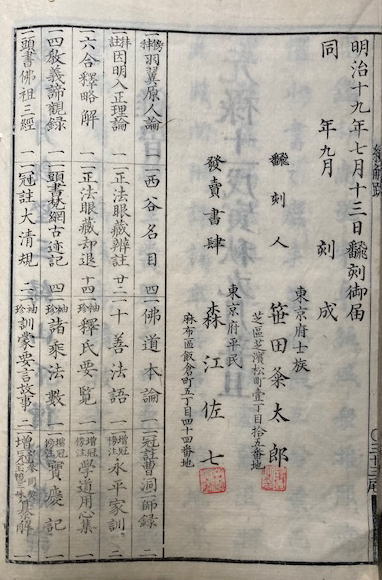 明治十九年七月十三日飜刻御届
同　年九月　刻成
東京府士族
飜刻人　笹田粂太郎
芝區芝濱松町壹丁目拾五番地
東京府平民
發賣書肆　森江佐七
麻布區飯倉町五丁目四十四番地
傍注 羽翼原人論 一
西谷名目 四
佛道本論 一
冠註曹洞二師錄 二
科註 因明入正理論 一
正法眼藏辨註 廿二
十善法語 一
增冠傍注 永平家訓 二
六合釋略解 一
正法眼藏却退 十四
袖珍 釋氏要覽 一
增冠傍注 學道用心集 一
四敎義諦觀錄 一
頭書梵網古迹記 四
袖珍 諸乘法數 一
增冠傍注 寶慶記 一
頭書佛祖三經 一
冠註大清規 二
袖珍 訓蒙要言故事 二
增冠